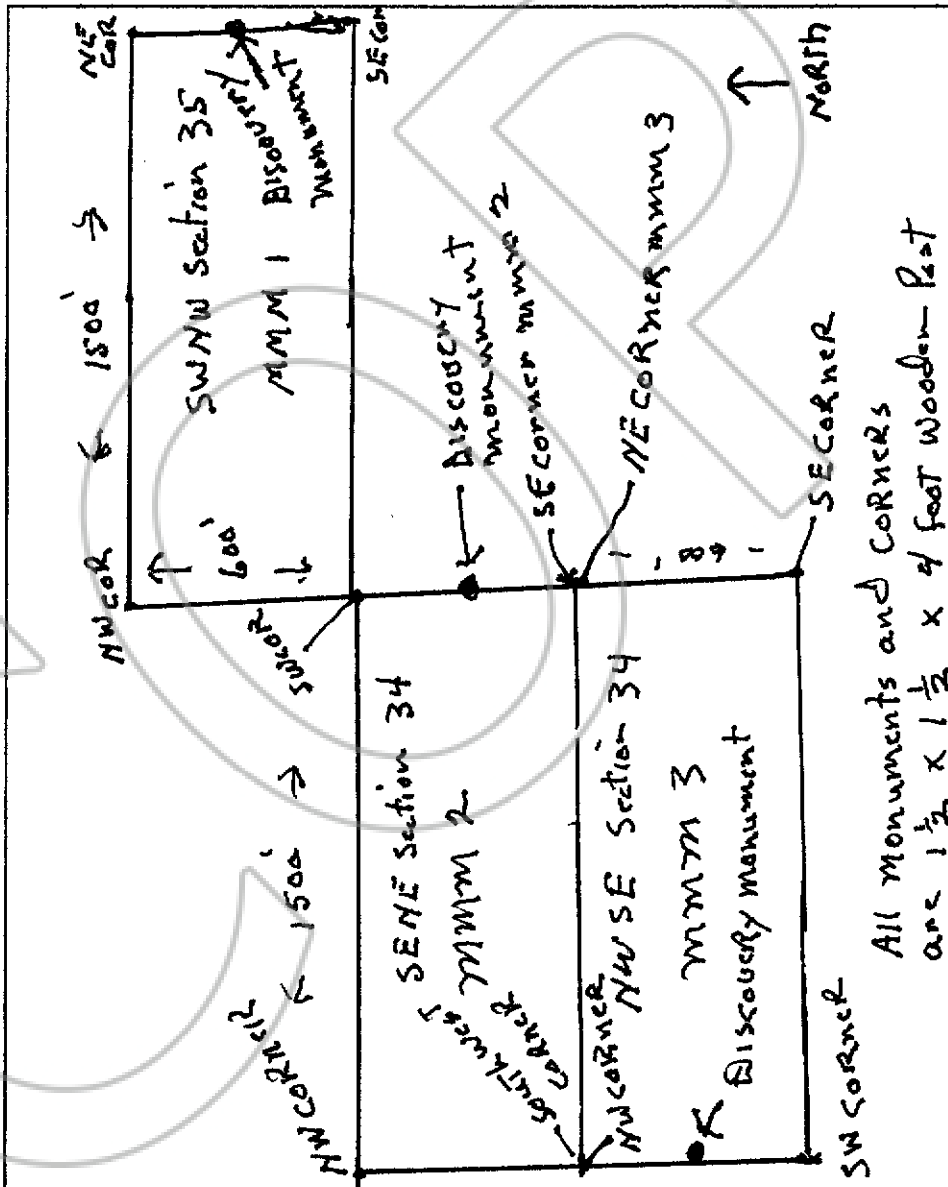 NW COR
1500'
NE COR
600'
SWNW Section 35
MMM 1
Discovery
monument
SW COR
SE COR
NW CORNER
1500'
SENE Section 34
MMM 2
South west
CORNER
Discovery
monument
SE corner mmm 2
NW CORNER
NW SE Section 34
NE CORNER mmm 3
mmm 3
Discovery monument
SW CORNER
SE CORNER
NORTH
All monuments and CORNERS
are 1 1/2 x 1 1/2 x 4 foot wooden Post
COP